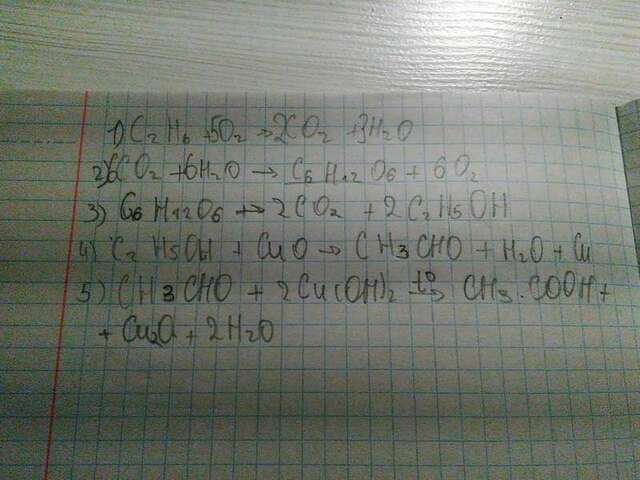 1) C2H6 + 5O2 → 2CO2 + 3H2O
2) 6CO2 + 6H2O → C6H12O6 + 6O2
3) C6H12O6 → 2CO2 + 2C2H5OH
4) C2H5OH + CuO → CH3CHO + H2O + Cu
5) CH3CHO + 2Cu(OH)2 t° → CH3COOH +
+ Cu2O + 2H2O